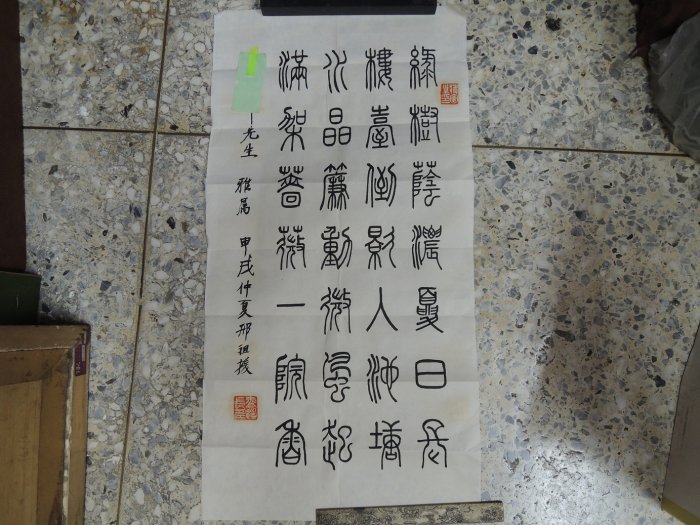 綠樹蔭濃夏日長
樓臺倒影入池塘
水晶簾動微風起
滿架薔薇一院香
先生 雅屬 甲戌仲夏邢祖援